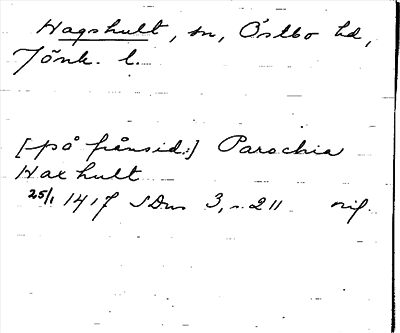 Hagshult, sn, Östbo hd,
Jönk. l.
[på frånsid.:] Parochia
Haxhult
25/1 1417 SDns 3, s. 211 orig.